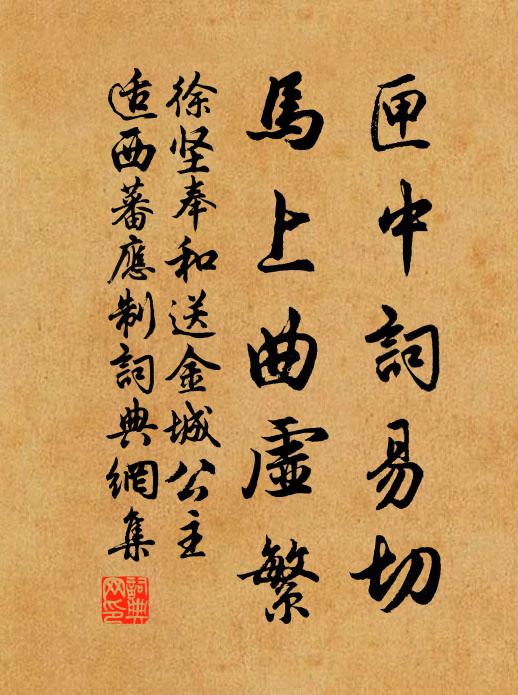 匣中詞易切
馬上曲虛繁
徐坚奉和送金城公主
适西蕃應制詞典網集
詞典网印